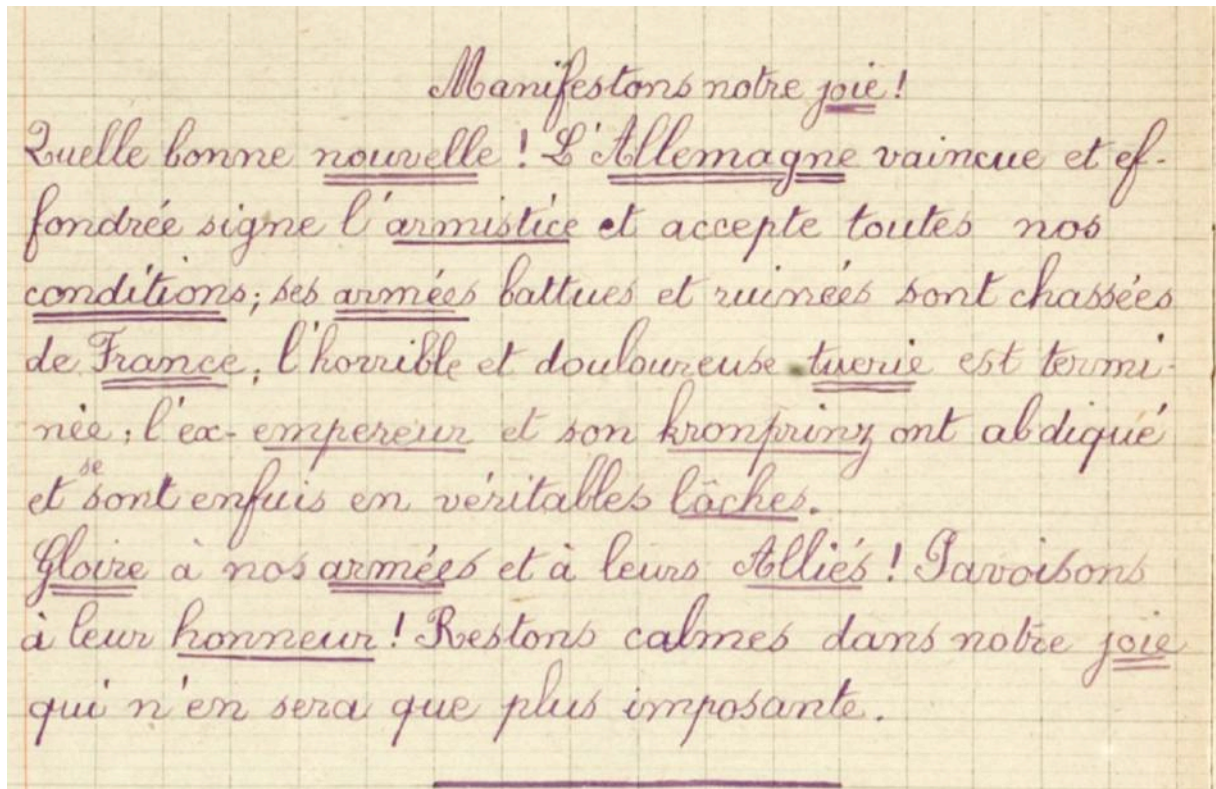 Manifestons notre joie !
Quelle bonne nouvelle ! L'Allemagne vaincue et ef-
fondrée signe l'armistice et accepte toutes nos
conditions ; ses armées battues et ruinées sont chassées
de France ; l'horrible et douloureuse tuerie est termi-
née ; l'ex-empereur et son kronprinz ont abdiqué
et se sont enfuis en véritables lâches.
Gloire à nos armées et à leurs Alliés ! Pavoisons
à leur honneur ! Restons calmes dans notre joie
qui n'en sera que plus imposante.